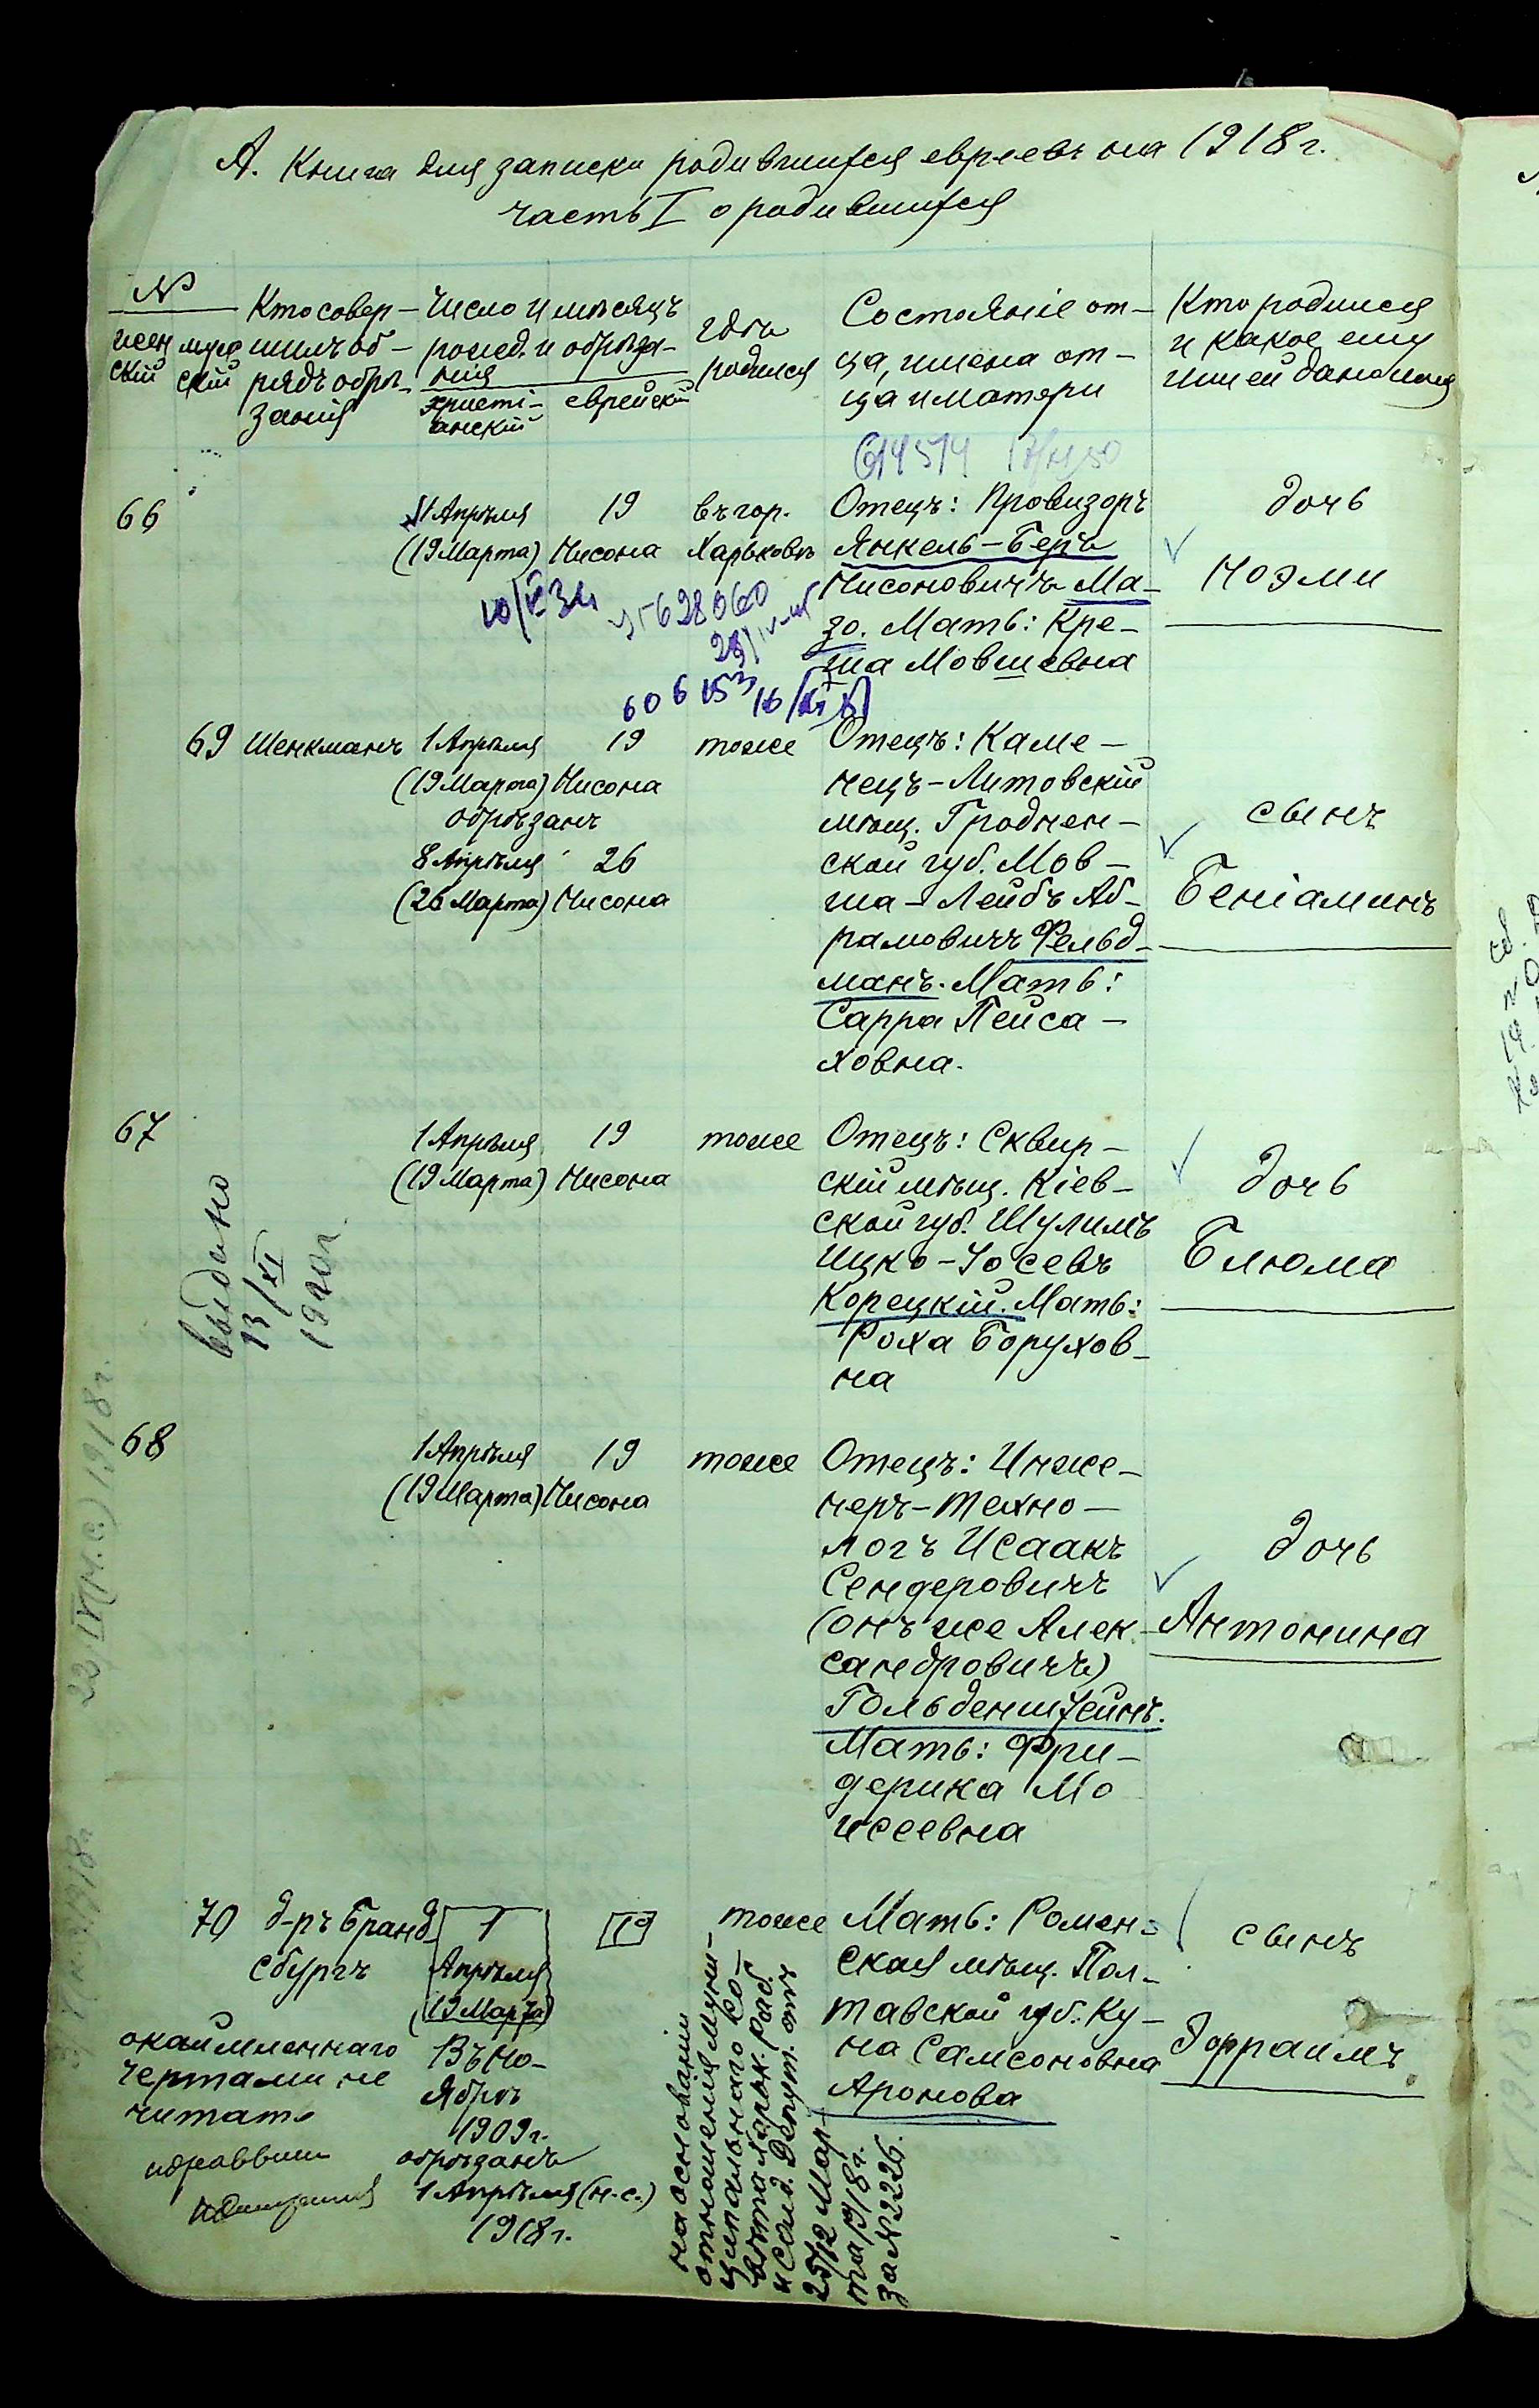 А. Книга для записки родившихся евреевъ на 1918 г.
часть I о родившихся
№
женскій
мужескій
Кто совер-
шилъ об-
рядъ обрѣ-
занія
Число и мѣсяцъ
рожд. и обрѣза-
нія
христі-
анскій
еврейскій
гдѣ
родился
Состояніе от-
ца, имена от-
ца и матери
Кто родился
и какое ему
или ей дано имя
614514
66
1 Апрѣля
(19 Марта)
19
Нисона
въ гор.
Харьковѣ
Отецъ: Провизоръ
Янкель-Беръ
Нисоновичъ Ма-
зо. Мать: Кре-
ша Мовшевна
дочь
Ноэми
628060
69
Шенкманъ
1 Апрѣля
(19 Марта)
обрѣзанъ
8 Апрѣля
(26 Марта)
19
Нисона
26
Нисона
тоже
Отецъ: Каме-
нецъ-Литовскій
мѣщ. Гроднен-
ской губ. Мов-
ша-Лейбъ Аб-
рамовичъ Фельд-
манъ. Мать:
Сарра Пейса-
ховна.
сынъ
Беніаминъ
67
выдано
13/XI
1920г.
1 Апрѣля
(19 Марта)
19
Нисона
тоже
Отецъ: Сквир-
скій мѣщ. Кіев-
ской губ. Шулимъ
Ицко-Іосевъ
Корецкій. Мать:
Роха Борухов-
на
дочь
Блюма
68
1 Апрѣля
(19 Марта)
19
Нисона
тоже
Отецъ: Инже-
неръ-техно-
логъ Исаакъ
Сендеровичъ
(онъ же Алек-
сандровичъ)
Гольденштейнъ.
Мать: Фри-
дерика Мо
исеевна
дочь
Антонина
70
д-ръ Бранд
сбургъ
1
Апрѣля
(19 Марта)
Въ Но-
ябрѣ
1909 г.
обрѣзанъ
1 Апрѣля (н.с.)
1918 г.
19
тоже
Мать: Ромен-
ская мѣщ. Пол-
тавской губ. Ку-
на Самсоновна
Аронова
сынъ
Эфраимъ
окаймленнаго
чертами не
читать
на основаніи
отношенія муни-
ципальнаго ко-
митета Харьк. Раб.
и Солд. Депут. отъ
25/12 Мар-
та 1918 г.
за № 2226.
22/IV (н.с.) 1918 г.